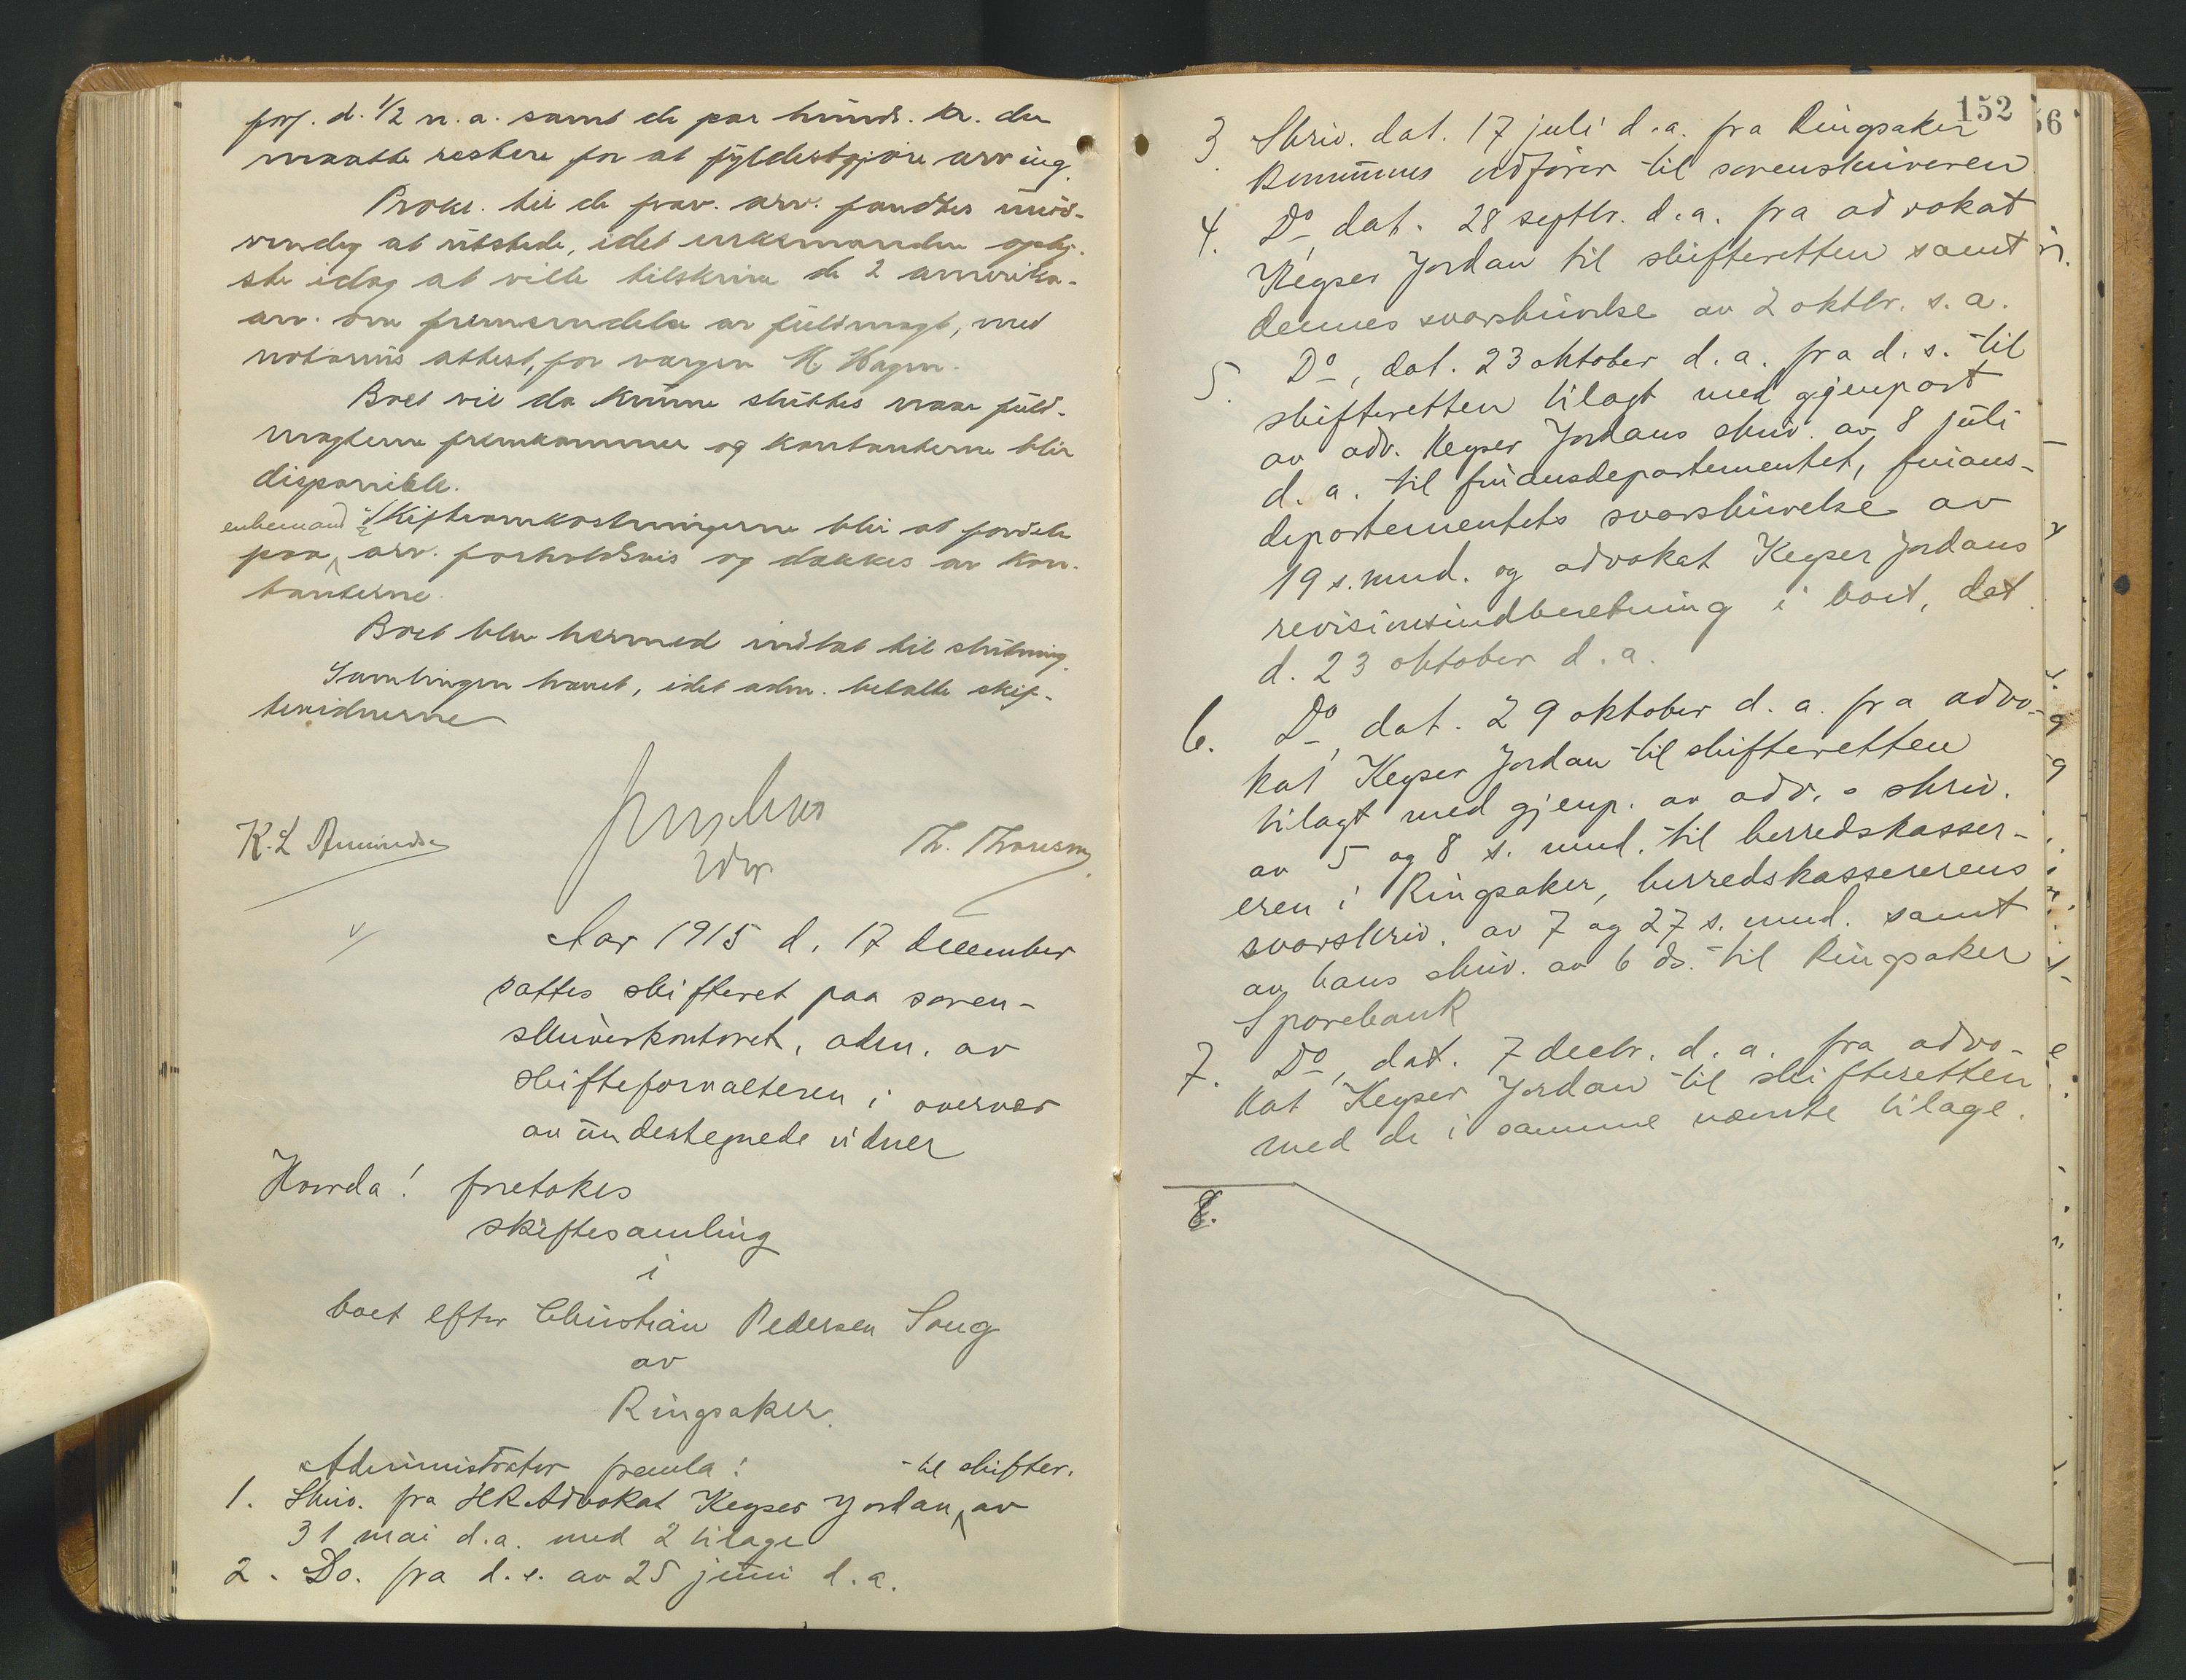 forf. d. 1/2 n. a. samt de par hundr. kr. der
maatte restere for at fyldestgjøre arving.
Prokl. til de frav. arv. fandtes unød-
vendig at utstede, idet enkemanden oply-
ste idag at ville tilskrive de 2 amerika-
arv. om fremsendelse av fuldmagt, med
notarius attest, for vergen M. Hagen.
Boet vil da kunne sluttes naar fuld-
magterne fremkommer og kontanterne blir
disponible.
Skifteomkostningerne blir at fordele
enkemand
paa arv. forholdsvis og dækkes av kon-
tanterne.
Boet blev hermed indtat til slutning.
Samlingen hævet, idet adm. betalte skif-
tevidnerne
K. L. Amundsen
Th. Thoresen
Aar 1915 d. 17 december
sattes skifteret paa soren-
skriverkontoret, adm. av
skifteforvalteren i overvær
av undertegnede vidner
Hvorda! foretokes
skiftesamling
i
boet efter Christian Pedersen Saug
av
Ringsaker.
Administrator fremla:
til skifter.
1. Skriv. fra HR Advokat Keyser Jordan av
31 mai d.a. med 2 bilage
2. Do. fra d. s. av 25 juni d. a.
152
56
3 Skriv. dat. 17 juli d. a. fra Ringsaker
kommunes ordfører til sorenskriveren
4. Do, dat. 28 septbr. d. a. fra advokat
Keyser Jordan til skifteretten samt
dennes svarskrivelse av 2 oktbr. s. a.
5. Do, dat. 23 oktober d. a. fra d. s. til
skifteretten bilagt med gjenpart
av adv. Keyser Jordans skriv. av 8 juli
d. a. til finansdepartementet, finans-
departementets svarskrivelse av
19 s. mnd. og advokat Keyser Jordans
revisionsindberetning i boet, dat.
d. 23 oktober d. a.
6. Do, dat. 29 oktober d. a. fra advo-
kat Keyser Jordan til skifteretten
bilagt med gjenp. av adv. s skriv.
av 5 og 8 s. mnd. til herredskasser-
eren i Ringsaker, herredskassererens
svarskriv. av 7 og 27 s. mnd. samt
av hans skriv. av 6 ds. til Ringsaker
Sparebank
7. Do, dat. 7 decbr. d. a. fra advo-
kat Keyser Jordan til skifteretten
med de i samme nævnte bilage.
8.